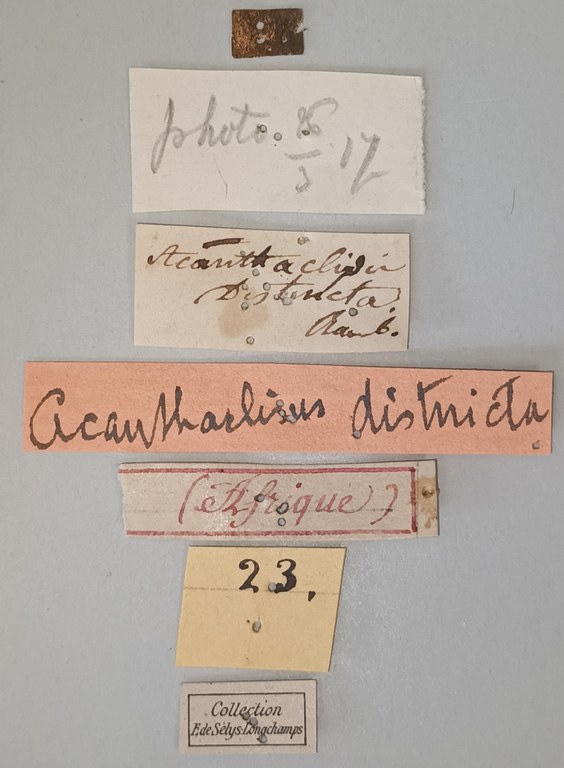 photo. 26/3 17
Acanthaclisis
Distincta
Ramb.
Acanthaclisus districta
(Afrique)
23.
Collection
E. de Sélys-Longchamps